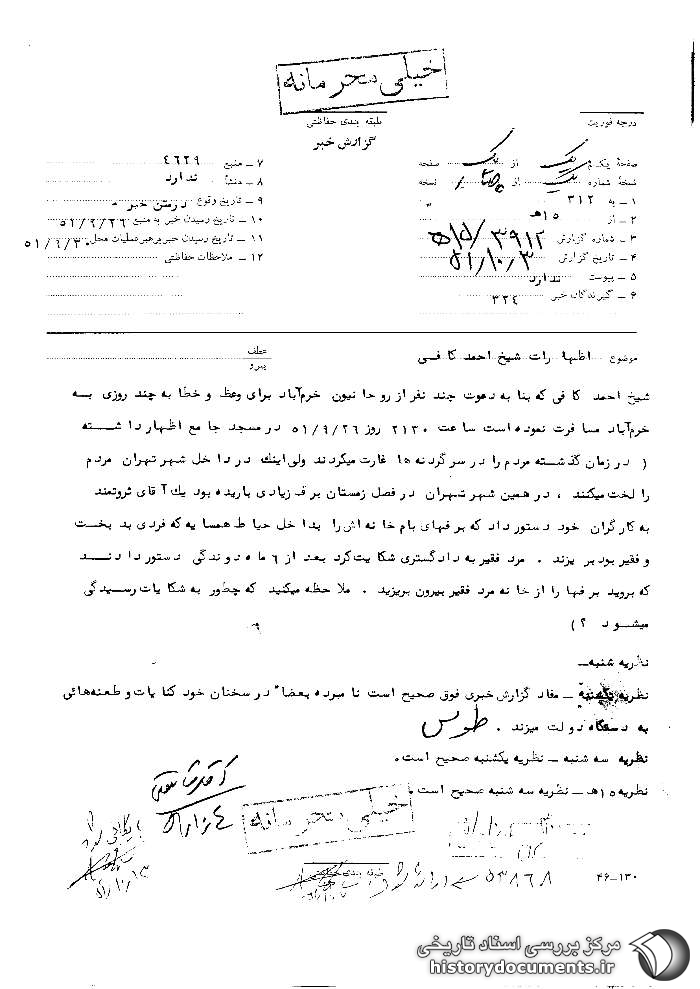 خیلی محرمانه
درجه فوریت
طبقه بندی حفاظتی
گزارش خبر
صفحهٔ یکم یک از یک صفحه
نسخهٔ شماره یک از نسخه
۱ – به ۳۱۲
۲ – از ۱۵ هـ
۳ – شماره گزارش ۳۹۱۲/ ۱۵هـ
۴ – تاریخ گزارش ۵۱/۱۰/۳
۵ – پیوست ندارد
۶ – گیرندگان خبر ۳۲۴
۷ – منبع ۴۶۲۹
۸ – منشأ ندارد
۹ – تاریخ وقوع درمتن خبر
۱۰ – تاریخ رسیدن خبر به منبع ۵۱/۹/۲۶
۱۱ – تاریخ رسیدن خبر برهبر عملیات محل ۵۱/۹/۳۰
۱۲ – ملاحظات حفاظتی
موضوع اظهارات شیخ احمد کافی
عطف
پیرو
شیخ احمد کافی که بنا به دعوت چند نفر از روحانیون خرم‌آباد برای وعظ و خطابه چند روزی به
خرم‌آباد مسافرت نموده است ساعت ۲۱۳۰ روز ۵۱/۹/۲۶ در مسجد جامع اظهار داشته
( در زمان گذشته مردم را در سرگردنه ها غارت میکردند ولی اینک در داخل شهر تهران مردم
را لخت میکنند ، در همین شهر تهران در فصل زمستان برف زیادی باریده بود یک آقای ثروتمند
به کارگران خود دستور داد که برفهای بام خانه اش را بداخل حیاط همسایه که فردی بدبخت
و فقیر بود بریزند . مرد فقیر به دادگستری شکایت کرد بعد از ۶ ماه دوندگی دستور دادند
که بروید برفها را از خانه مرد فقیر بیرون بریزید . ملاحظه میکنید که چطور به شکایات رسیدگی
میشود ؟)
نظریه شنبه–
نظریه یکشنبه – مفاد گزارش خبری فوق صحیح است نامبرده بعضاً در سخنان خود کنایات و طعنه‌هائی
به دستگاه دولت میزند . طوس
نظریه سه شنبه – نظریه یکشنبه صحیح است.
نظریه ۱۵هـ – نظریه سه شنبه صحیح است.
خیلی محرمانه
بایگانی شود
طبقه بندی حفاظتی
۵۳۸۶۸
۴۶–۱۳۰
مرکز بررسی اسناد تاریخی
historydocuments.ir